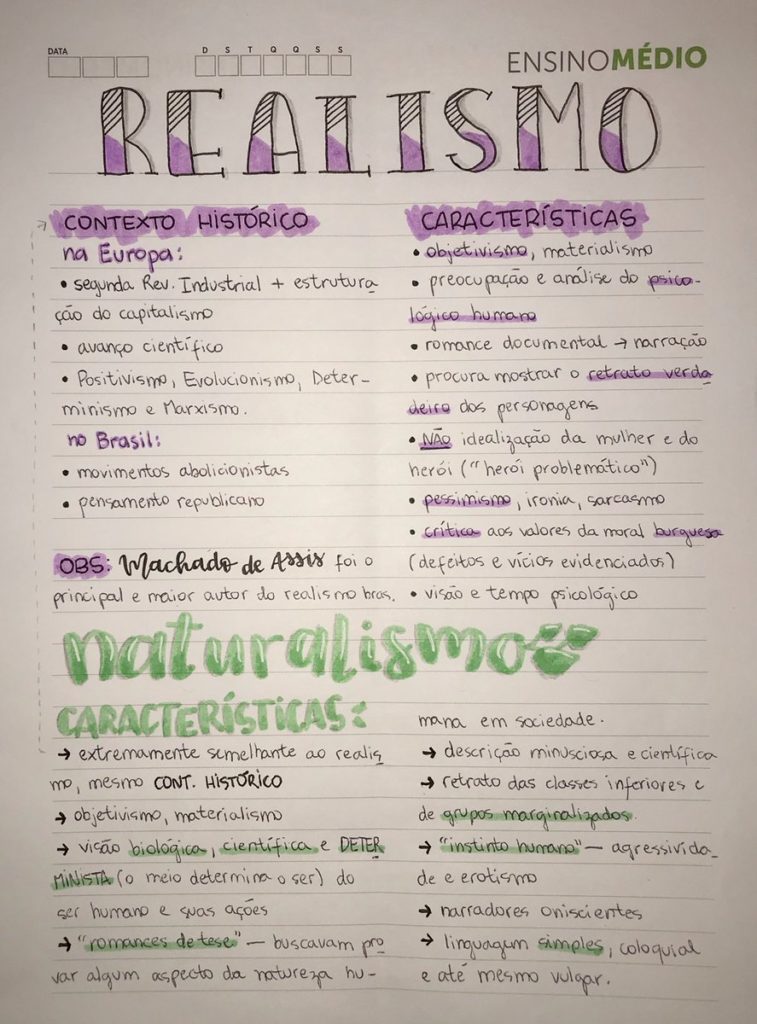 DATA
D S T Q Q S S
ENSINOMÉDIO
REALISMO
CONTEXTO HISTÓRICO
na Europa:
• segunda Rev. Industrial + estrutura
ção do capitalismo
• avanço científico
• Positivismo, Evolucionismo, Deter-
minismo e Marxismo.
no Brasil:
• movimentos abolicionistas
• pensamento republicano
OBS: Machado de Assis foi o
principal e maior autor do realismo bras.
CARACTERÍSTICAS
• objetivismo, materialismo
• preocupação e análise do psico-
lógico humano
• romance documental → narração
• procura mostrar o retrato verda
deiro dos personagens
• NÃO idealização da mulher e do
herói ("herói problemático")
• pessimismo, ironia, sarcasmo
• crítica aos valores da moral burguesa
(defeitos e vícios evidenciados)
• visão e tempo psicológico
naturalismo
CARACTERÍSTICAS:
→ extremamente semelhante ao realis
mo, mesmo CONT. HISTÓRICO
→ objetivismo, materialismo
→ visão biológica, científica e DETER
MINISTA (o meio determina o ser) do
ser humano e suas ações
→ "romances de tese" — buscavam pro
var algum aspecto da natureza hu-
mana em sociedade.
→ descrição minusciosa e científica
→ retrato das classes inferiores e
de grupos marginalizados.
→ "instinto humano" — agressivida-
de e erotismo
→ narradores oniscientes
→ linguagem simples, coloquial
e até mesmo vulgar.